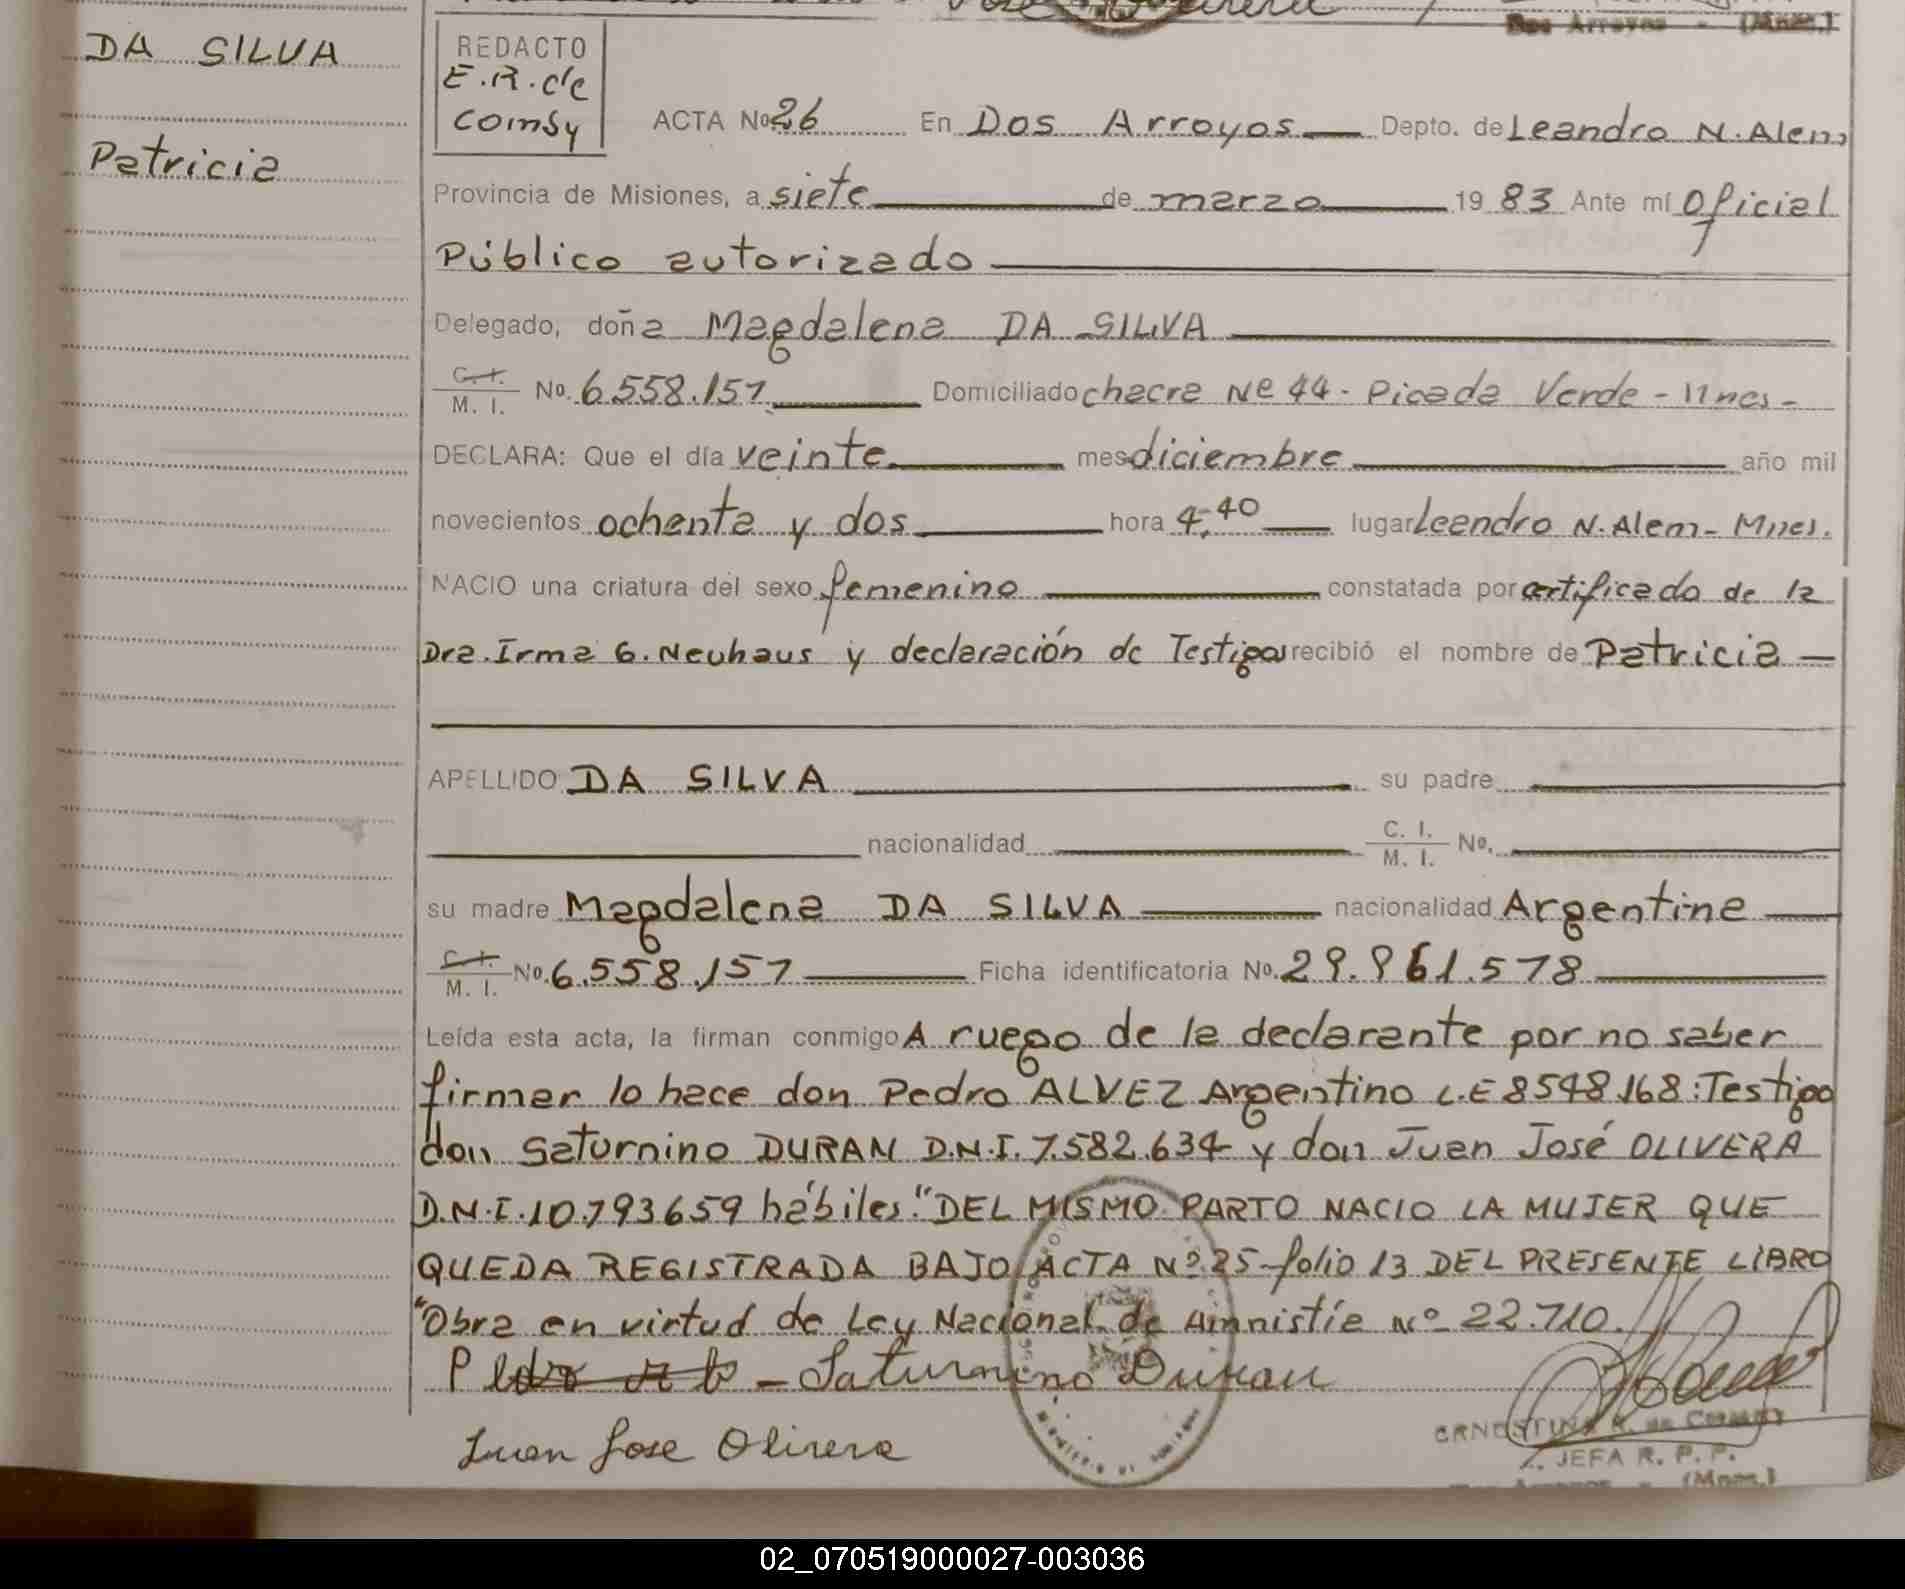 DA SILVA
Patricia
REDACTO
E.R. de
Comsy
ACTA No 26 En Dos Arroyos Depto. de Leandro N. Alem
Provincia de Misiones, a siete de marzo 19 83 Ante mí Oficial
Público autorizado
Delegado, doña Magdalena DA SILVA
C. I.
M. I. No. 6.558.157 Domiciliado chacra Nº 44 - Picada Verde - Mnes -
DECLARA: Que el día veinte mes diciembre año mil
novecientos ochenta y dos hora 4,40 lugar Leandro N. Alem - Mnes.
NACIO una criatura del sexo femenino constatada por certificado de la
Dra. Irma G. Neuhaus y declaración de Testigos recibió el nombre de Patricia
APELLIDO DA SILVA su padre
nacionalidad C. I.
M. I. No.
su madre Magdalena DA SILVA nacionalidad Argentina
C. I.
M. I. No. 6.558.157 Ficha identificatoria No. 29.961.578
Leída esta acta, la firman conmigo A ruego de la declarante por no saber
firmar lo hace don Pedro ALVEZ Argentino L.E 8548.168: Testigo
don Saturnino DURAN D.N.I. 7.582.634 y don Juan José OLIVERA
D.N.I. 10.793659 hábiles. "DEL MISMO PARTO NACIO LA MUJER QUE
QUEDA REGISTRADA BAJO ACTA Nº 25 - folio 13 DEL PRESENTE LIBRO
"Obra en virtud de Ley Nacional de Amnistía Nº 22.710.
Saturnino Duran
Juan Jose Olivera
JEFA R. P. P.
(Mnes.)
02_070519000027-003036